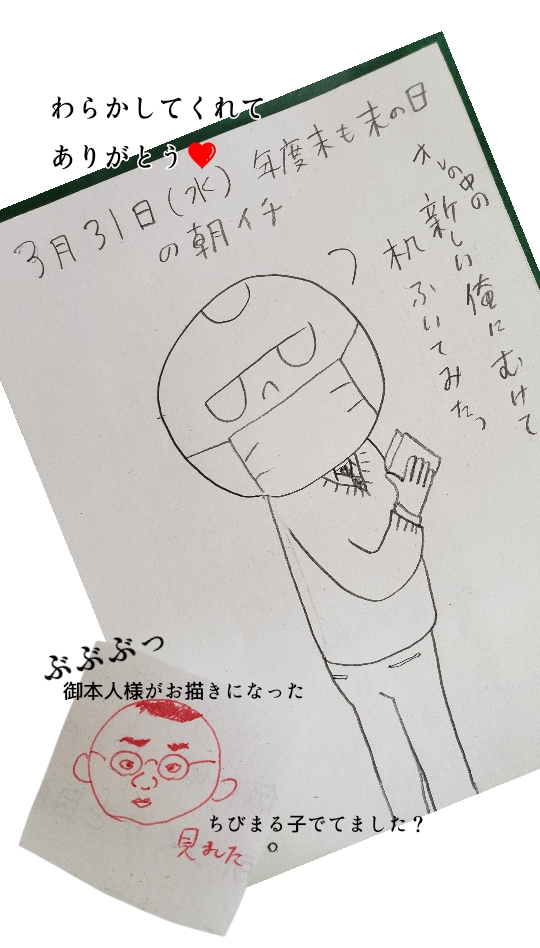 わらかしてくれて
ありがとう❤
3月31日(水) 年度末も末の日
の朝イチ
オレの中の
新しい俺にむけて
机ふいてみたっ
ぶぶぶっ
御本人様がお描きになった
ちびまる子でてました?
見れた。